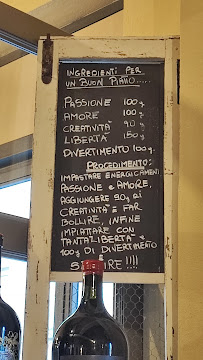 INGREDIENTI PER
UN BUON PIATTO.....
PASSIONE 100g
AMORE 100g
CREATIVITÀ 90g
LIBERTÀ 150g
DIVERTIMENTO 100g.
PROCEDIMENTO:
IMPASTARE ENERGICAMENTE
PASSIONE e AMORE,
AGGIUNGERE 90g di
CREATIVITÀ E FAR
BOLLIRE, INFINE
IMPIATTARE CON
TANTA LIBERTÀ e
100g DI DIVERTIMENTO
E